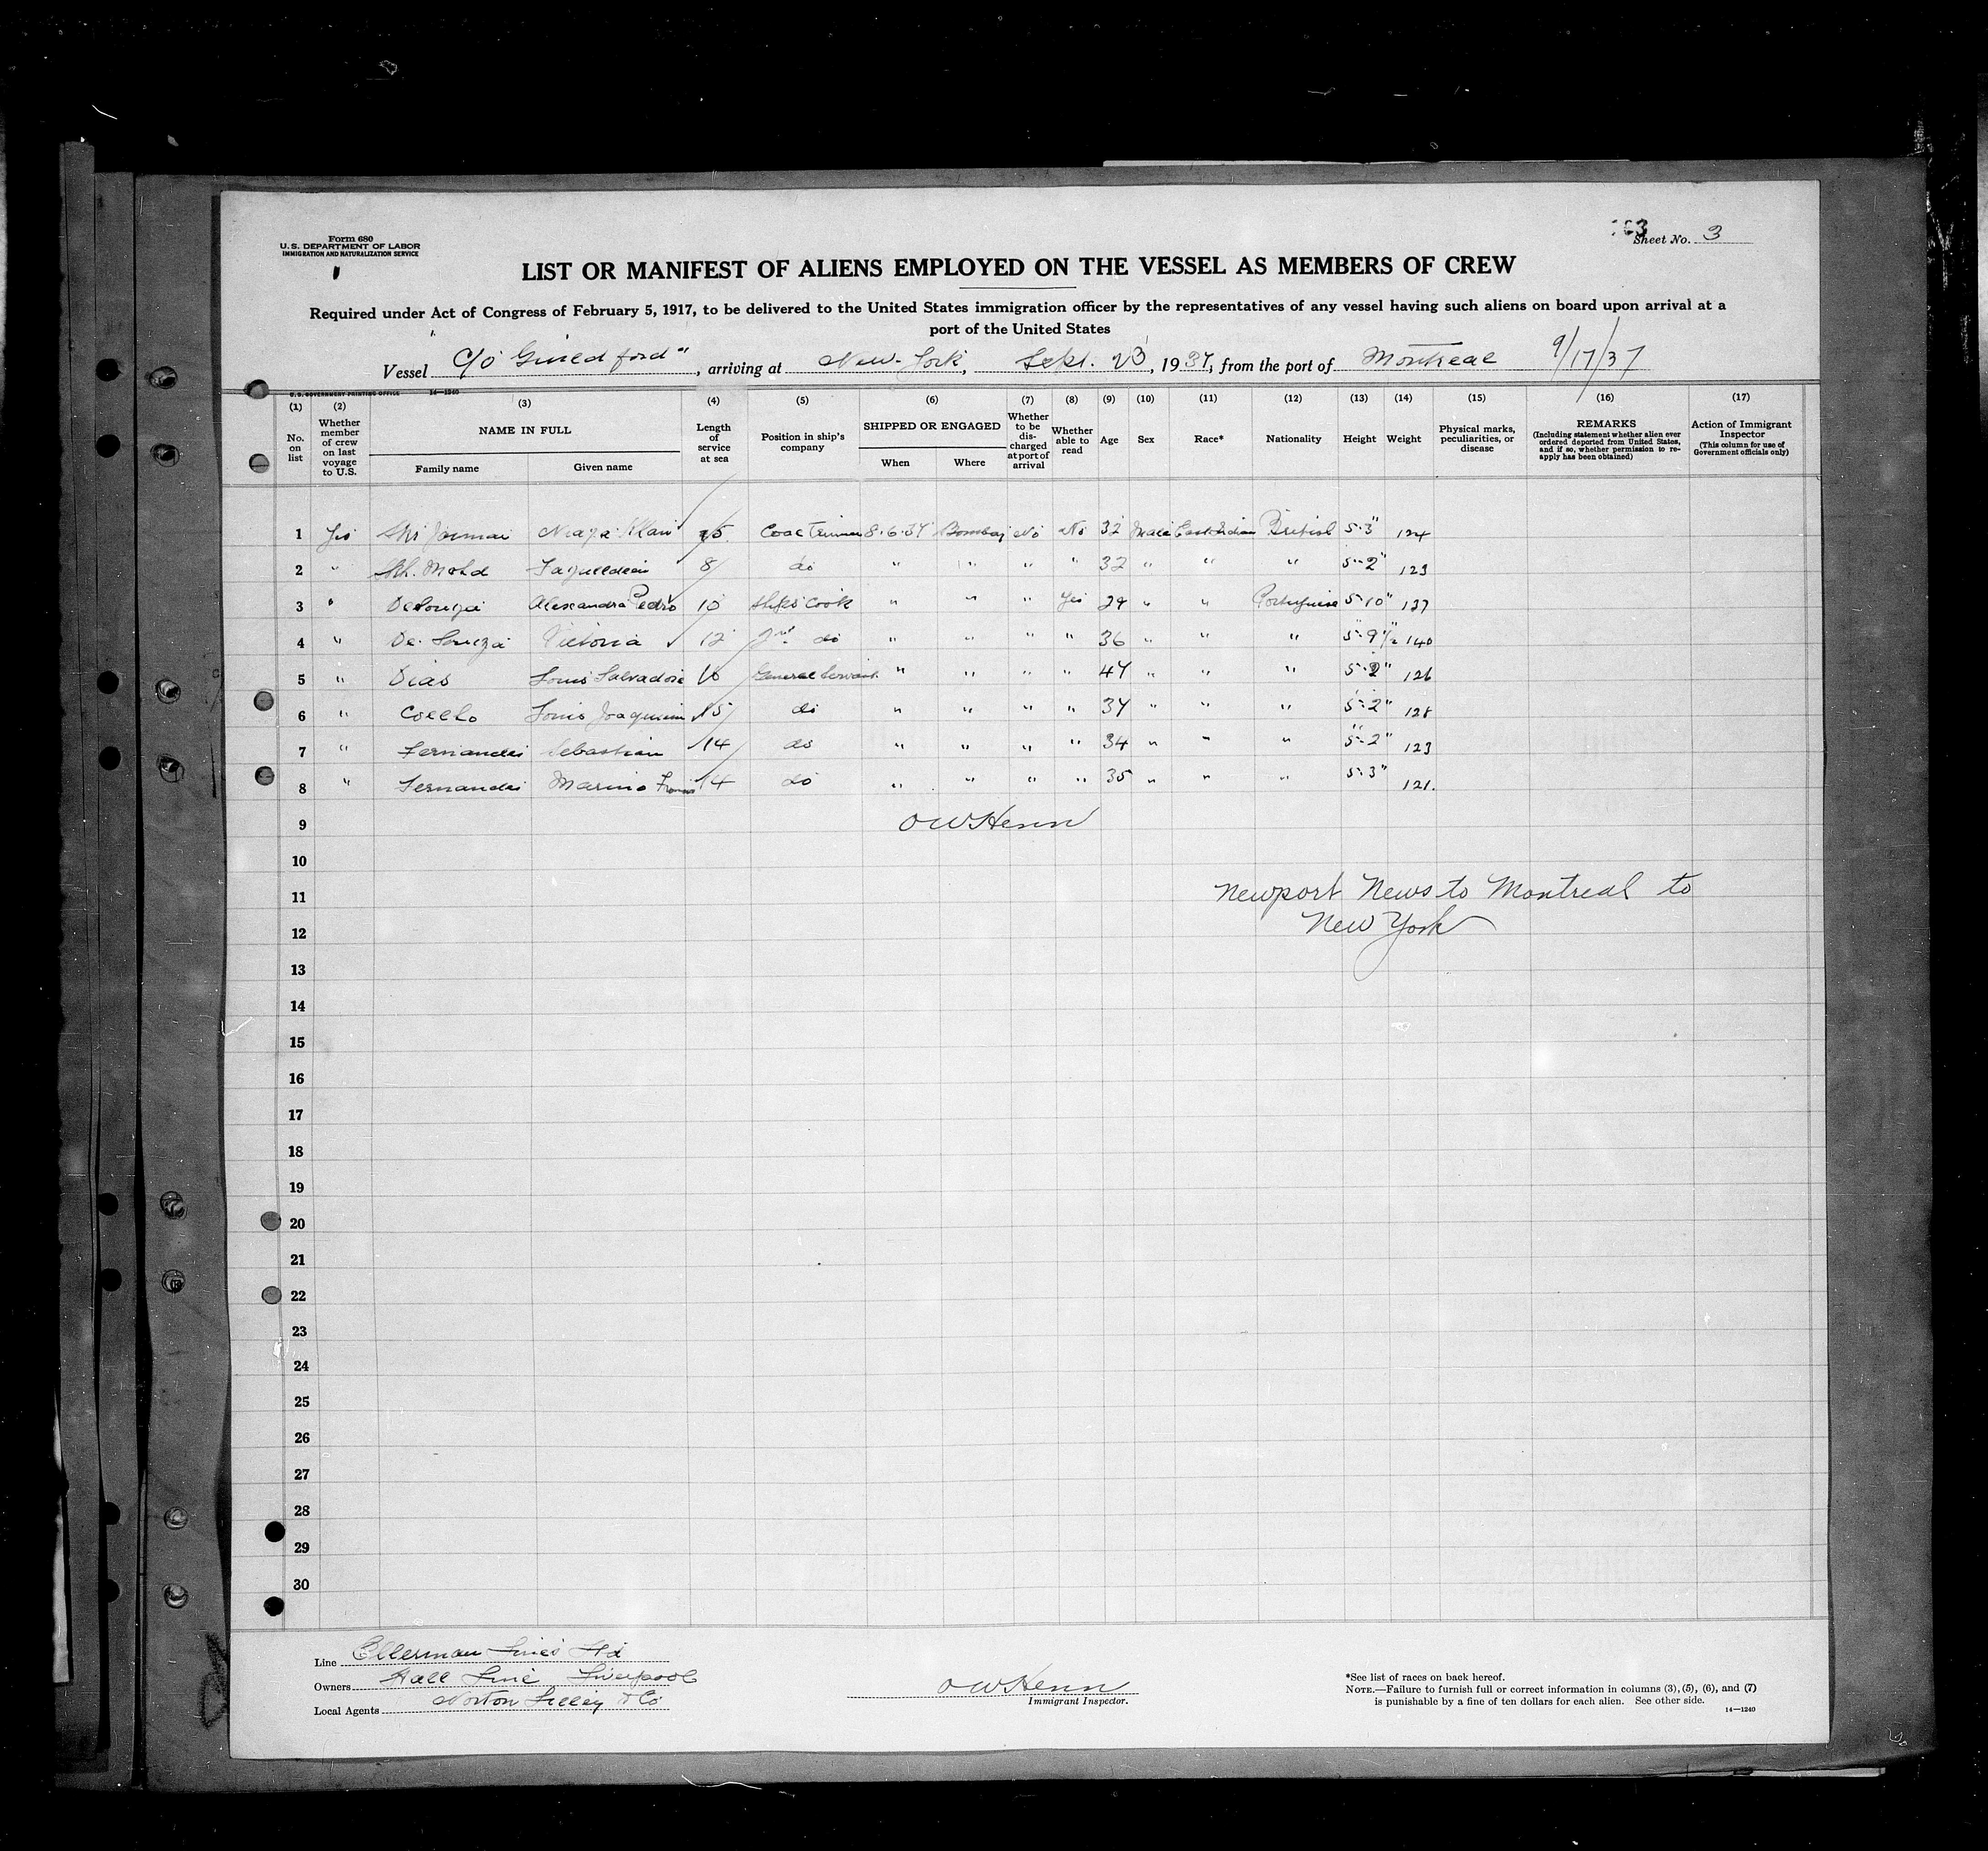 Form 680
U. S. DEPARTMENT OF LABOR
IMMIGRATION AND NATURALIZATION SERVICE
Sheet No. 3
LIST OR MANIFEST OF ALIENS EMPLOYED ON THE VESSEL AS MEMBERS OF CREW
Required under Act of Congress of February 5, 1917, to be delivered to the United States immigration officer by the representatives of any vessel having such aliens on board upon arrival at a
port of the United States
Vessel , arriving at New-York, Sept. 23, 1937, from the port of Montreal 9/17/37
U. S. GOVERNMENT PRINTING OFFICE 14—1240
(1) (2) (3) (4) (5) (6) (7) (8) (9) (10) (11) (12) (13) (14) (15) (16) (17)
No. on list
Whether member of crew on last voyage to U.S.
NAME IN FULL
Family name
Given name
Length of service at sea
Position in ship's company
SHIPPED OR ENGAGED
When
Where
Whether to be discharged at port of arrival
Whether able to read
Age
Sex
Race*
Nationality
Height
Weight
Physical marks, peculiarities, or disease
REMARKS
(Including statement whether alien ever ordered deported from United States, and if so, whether permission to re-apply has been obtained)
Action of Immigrant Inspector
(This column for use of Government officials only)
1 Yes Coal Trimmer 8.6.37 Bombay No No 32 Male East Indian British 5-3" 124
2 " Sk. Mohd 8 do " " " " 32 " " " 5-2" 123
3 " DeSouza Alexandra Pedro 10 Ships Cook " " " Yes 29 " " Portuguese 5-10" 137
4 " De. Souza Victoria 12 2nd do " " " " 36 " " " 5-9½ 140
5 " Dias Louis Salvadore 10 General Servant " " " " 47 " " " 5-2" 126
6 " Coelho Louis Joaquim 15 do " " " " 37 " " " 5-2" 128
7 " Fernandes Sebastian 14 do " " " " 34 " " " 5-2" 123
8 " Fernandes Marino Francis 14 do " " " " 35 " " " 5-3" 121.
9 OW Henn
10
11 Newport News to Montreal to
12 New York
13
14
15
16
17
18
19
20
21
22
23
24
25
26
27
28
29
30
Line Ellerman Lines Ltd
Owners Hall Line Liverpool
Local Agents Norton Lilley & Co
OW Henn
Immigrant Inspector.
*See list of races on back hereof.
NOTE.—Failure to furnish full or correct information in columns (3), (5), (6), and (7)
is punishable by a fine of ten dollars for each alien. See other side.
14—1240